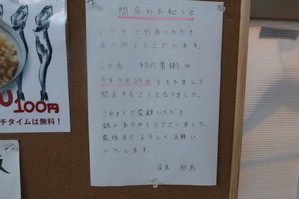 閉店のお知らせ
いつもご利用いただき
ありがとうございます。
この度
をもちまして
閉店することとなりました。
これまでご愛顧いただき
誠にありがとうございました。
最後までよろしくお願い
いたします。
店長
100円
チタイムは無料!